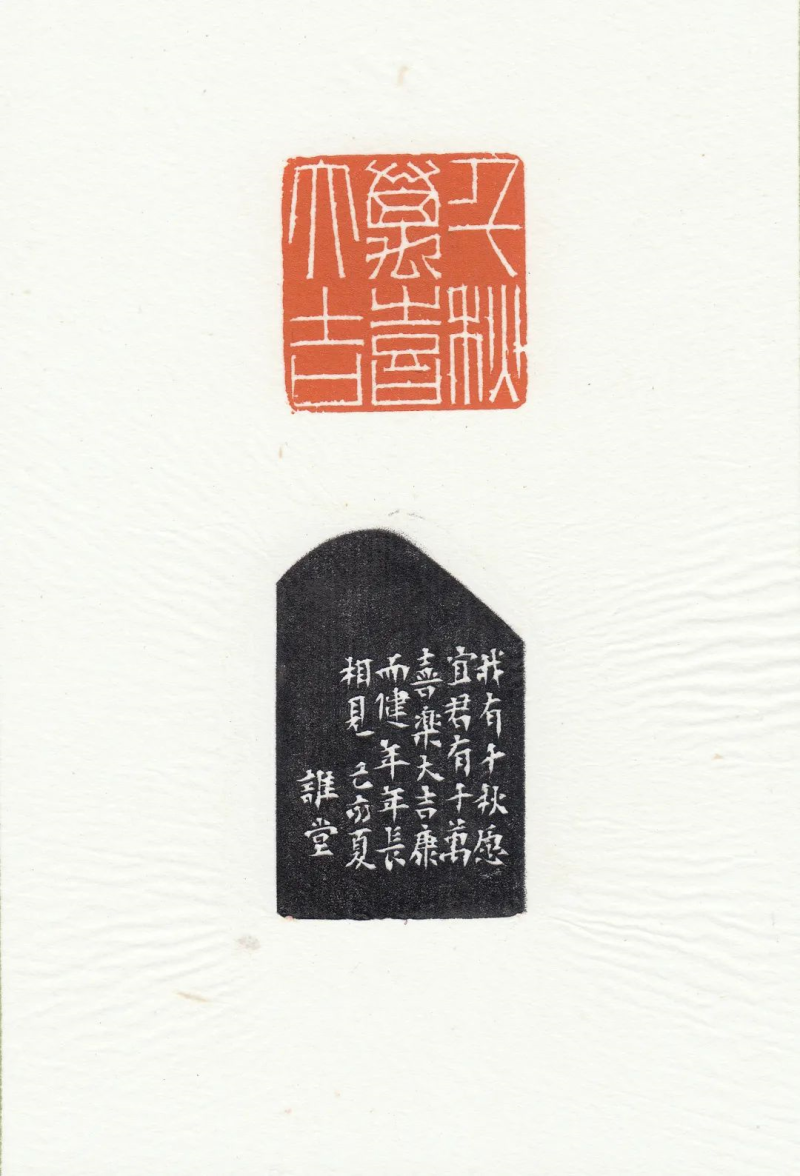 千秋
萬喜
大吉
我有千秋愿
宜君有千萬
喜樂大吉康
而健年年長
相見 己亥夏
誰堂